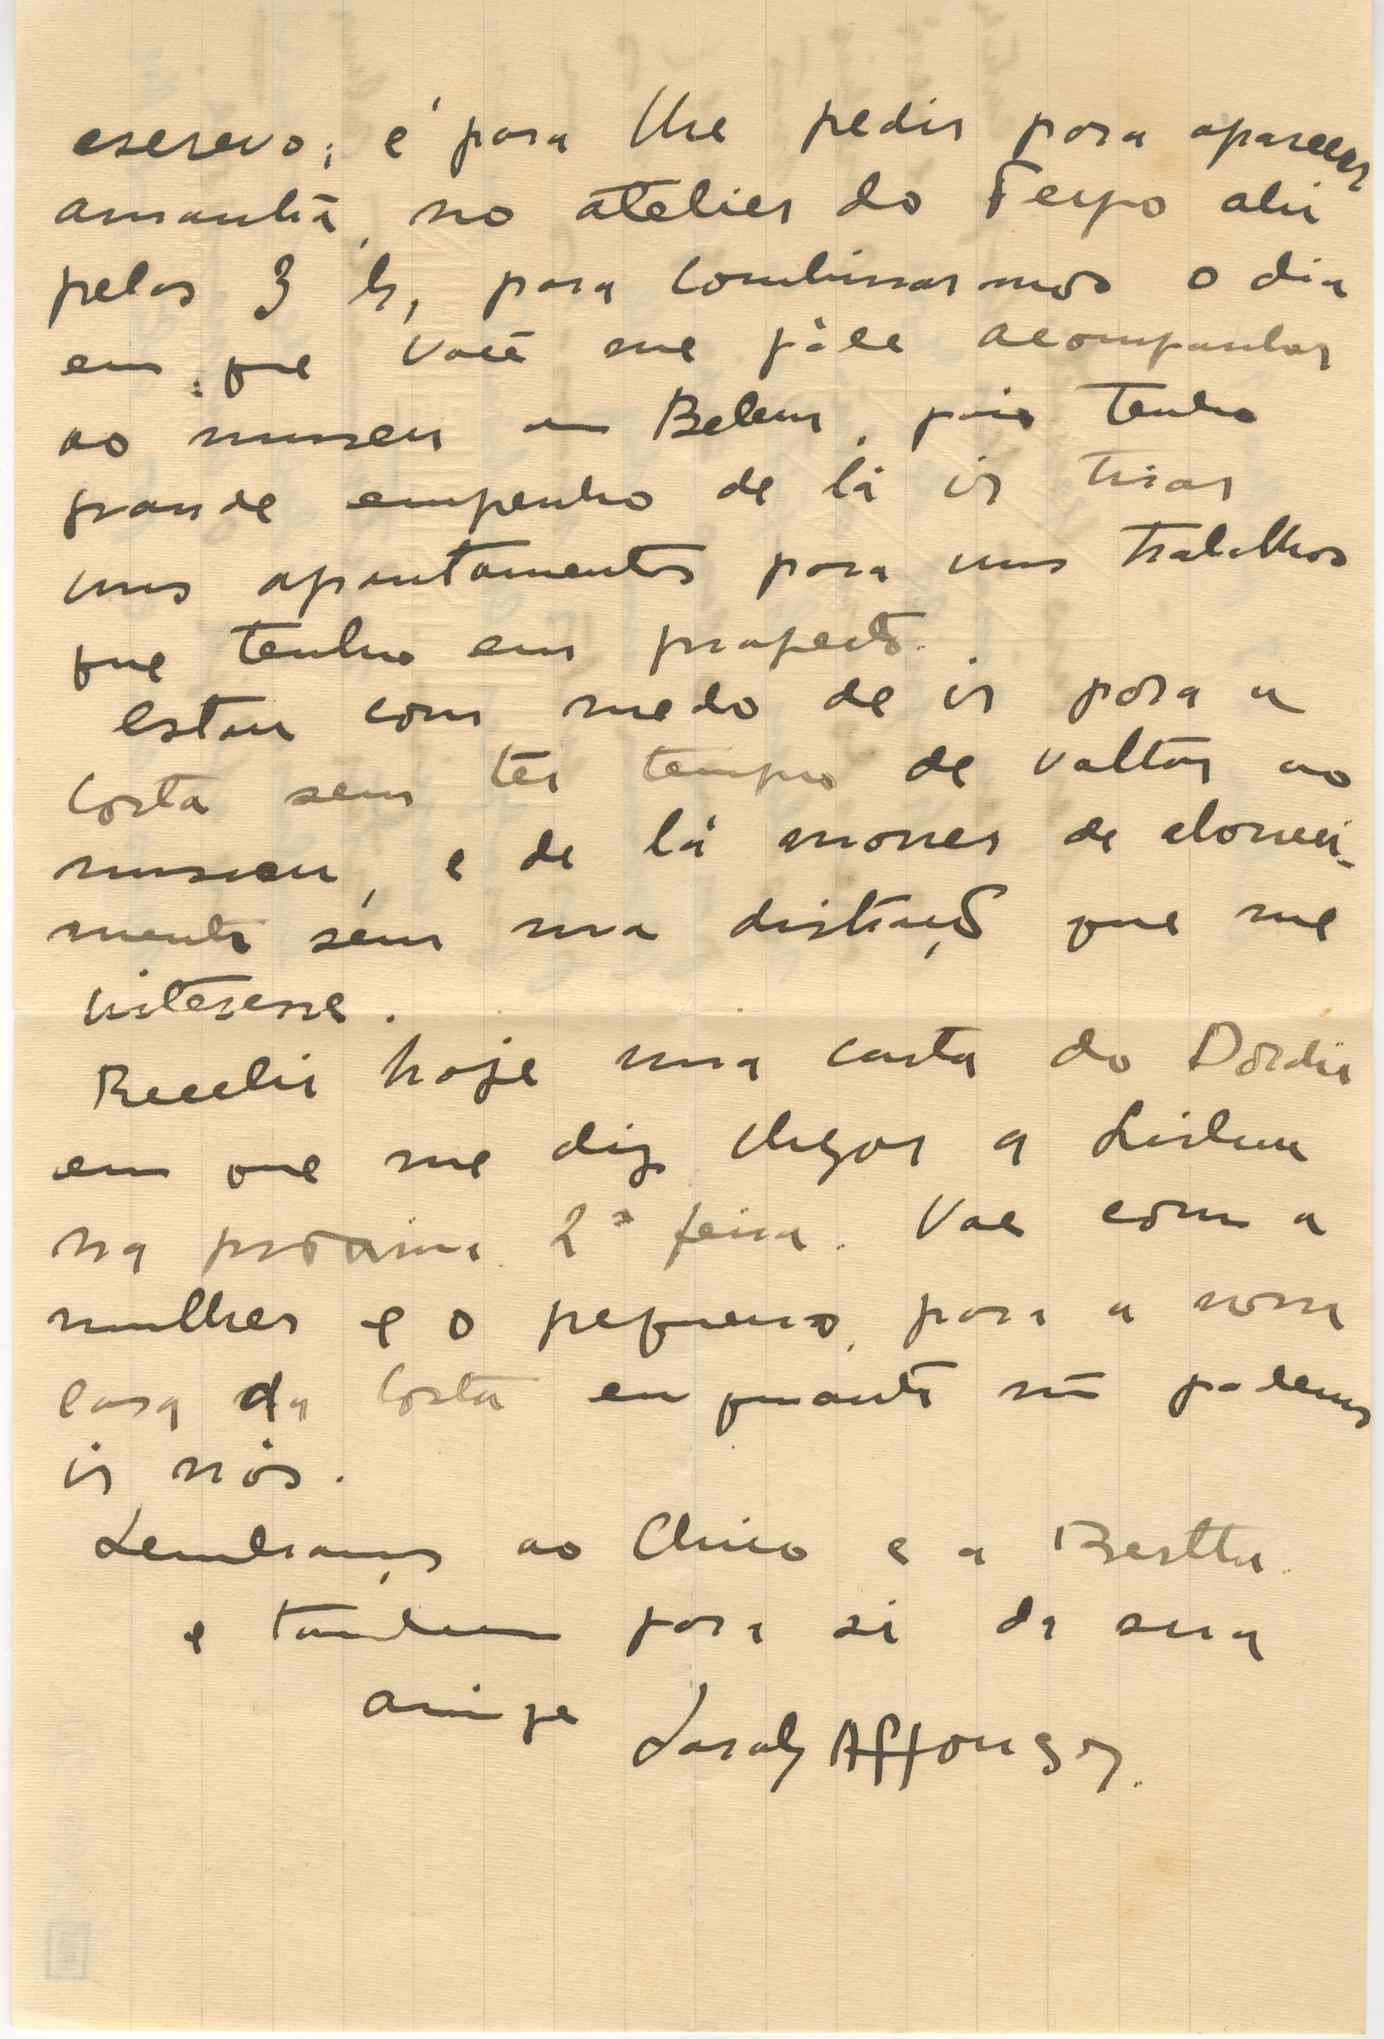 escrevo; é para lhe pedir para aparecer
amanhã, no atelier do ali
pelas 3 h, para combinarmos o dia
em que você me póde acompanhar
ao museu em Belem, pois tenho
grande empenho de lá ir tirar
uns apontamentos para uns trabalhos
que tenho em projecto.
Estou com medo de ir para a
Costa sem ter tempo de voltar ao
museu, e de lá morrer de aborreci-
mento sem uma distração que me
interesse.
Recebi hoje uma carta do Dordio
em que me diz chegar a Lisboa
na proxima 2ª feira. Vae com a
mulher e o pequeno, para a nossa
casa da Costa emquanto não podemos
ir nós.
Lembranças ao Chico e a Bertha
e tambem para si da sua
amiga Sarah Affonso.